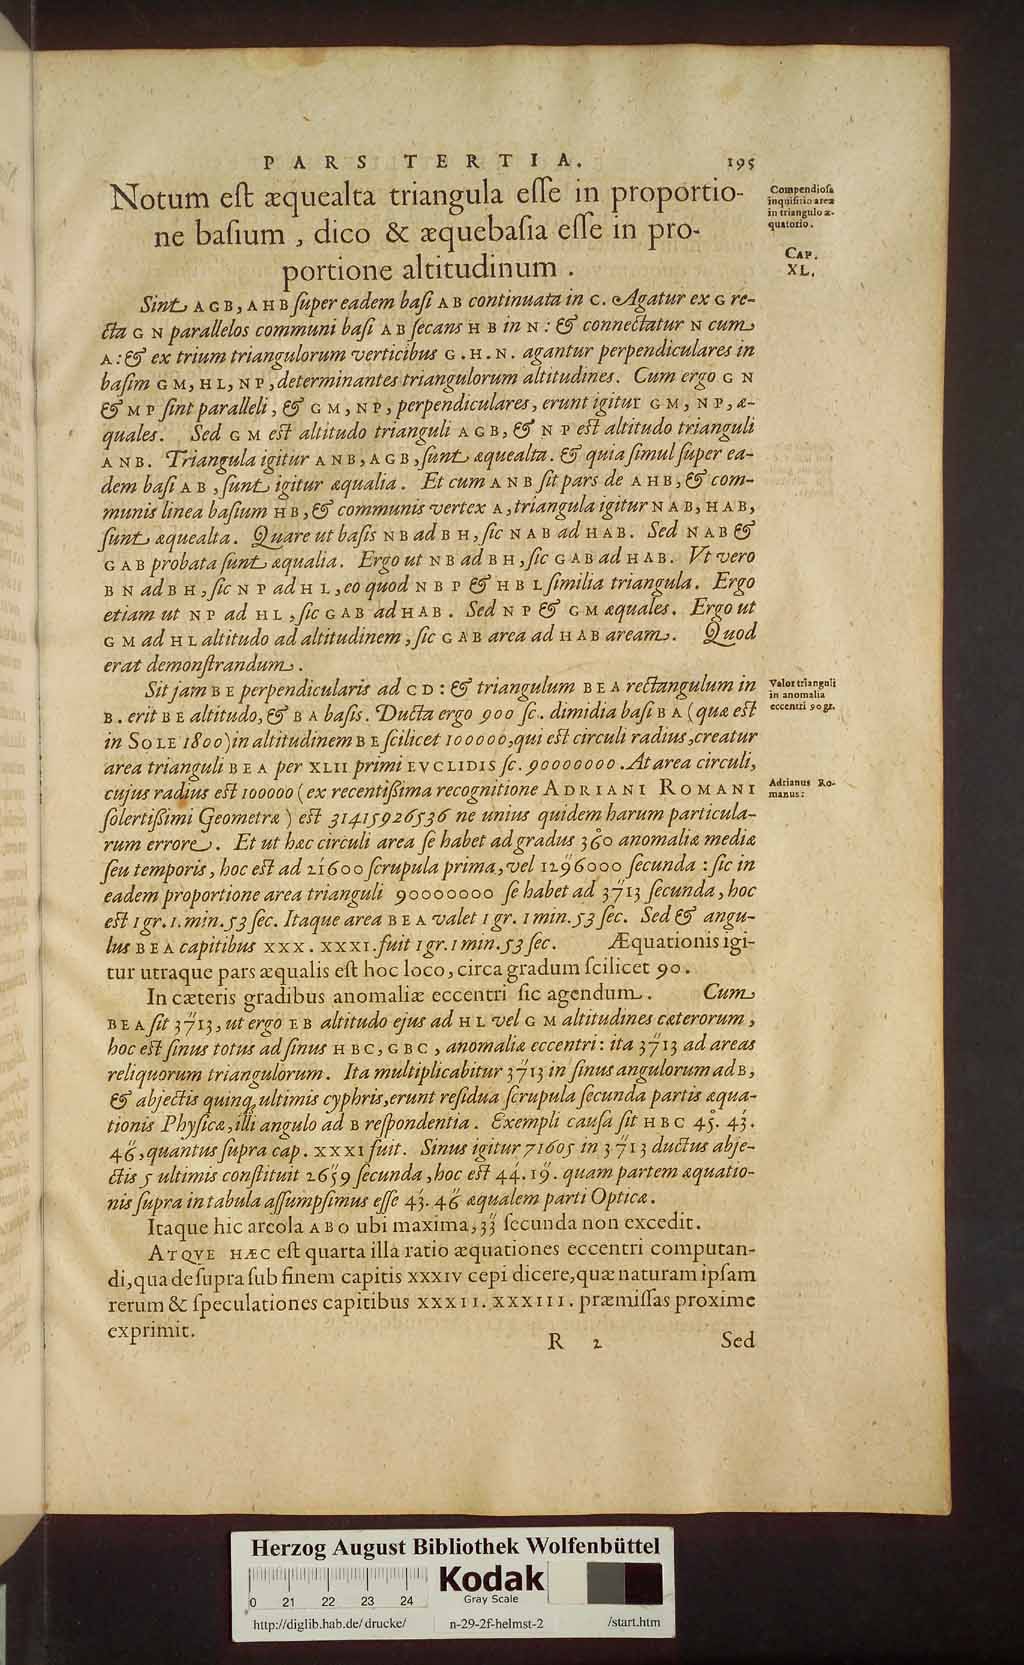 PARS TERTIA. 195
Notum eſt æquealta triangula eſſe in proportio-
ne baſium, dico & æquebaſia eſſe in pro-
portione altitudinum.
Compendioſa
inquiſitio areæ
in triangulo æ-
quatorio.
CAP.
XL.
Sint AGB, AHB ſuper eadem baſi AB continuata in C. Agatur ex G re-
cta GN parallelos communi baſi AB ſecans HB in N: & connectatur N cum
A: & ex trium triangulorum verticibus G. H. N. agantur perpendiculares in
baſim GM, HL, NP, determinantes triangulorum altitudines. Cum ergo GN
& MP ſint paralleli, & GM, NP, perpendiculares, erunt igitur GM, NP, æ-
quales. Sed GM eſt altitudo trianguli AGB, & NP eſt altitudo trianguli
ANB. Triangula igitur ANB, AGB, ſunt æquealta. & quia ſimul ſuper ea-
dem baſi AB, ſunt igitur æqualia. Et cum ANB ſit pars de AHB, & com-
munis linea baſium HB, & communis vertex A, triangula igitur NAB, HAB,
ſunt æquealta. Quare ut baſis NB ad BH, ſic NAB ad HAB. Sed NAB &
GAB probata ſunt æqualia. Ergo ut NB ad BH, ſic GAB ad HAB. Vt vero
BN ad BH, ſic NP ad HL, eo quod NBP & HBL ſimilia triangula. Ergo
etiam ut NP ad HL, ſic GAB ad HAB. Sed NP & GM æquales. Ergo ut
GM ad HL altitudo ad altitudinem, ſic GAB area ad HAB aream. Quod
erat demonſtrandum.
Sit jam BE perpendicularis ad CD: & triangulum BEA rectangulum in
B. erit BE altitudo, & BA baſis. Ducta ergo 900 ſc. dimidia baſi BA (quæ eſt
in SOLE 1800) in altitudinem BE ſcilicet 100000, qui eſt circuli radius, creatur
area trianguli BEA per XLII primi EVCLIDIS ſc. 90000000. At area circuli,
cujus radius eſt 100000 (ex recentiſſima recognitione ADRIANI ROMANI
ſolertiſſimi Geometræ) eſt 31415926536 ne unius quidem harum particula-
rum errore. Et ut hæc circuli area ſe habet ad gradus 36°0 anomaliæ mediæ
ſeu temporis, hoc eſt ad 21600 ſcrupula prima, vel 1296000 ſecunda: ſic in
eadem proportione area trianguli 90000000 ſe habet ad 37″13 ſecunda, hoc
eſt 1 gr. 1. min. 53 ſec. Itaque area BEA valet 1 gr. 1 min. 53 ſec. Sed & angu-
lus BEA capitibus XXX. XXXI. fuit 1 gr. 1 min. 53 ſec. Æquationis igi-
tur utraque pars æqualis eſt hoc loco, circa gradum ſcilicet 90.
Valor trianguli
in anomalia
eccentri 90 gr.
Adrianus Ro-
manus:
In cæteris gradibus anomaliæ eccentri ſic agendum. Cum
BEA ſit 37″13, ut ergo EB altitudo ejus ad HL vel GM altitudines cæterorum,
hoc eſt ſinus totus ad ſinus HBC, GBC, anomaliæ eccentri: ita 37″13 ad areas
reliquorum triangulorum. Ita multiplicabitur 37″13 in ſinus angulorum ad B,
& abjectis quinq; ultimis cyphris, erunt reſidua ſcrupula ſecunda partis æqua-
tionis Phyſicæ, illi angulo ad B reſpondentia. Exempli cauſa ſit HBC 45°. 43′.
46″, quantus ſupra cap. XXXI fuit. Sinus igitur 71605 in 37″13 ductus abje-
ctis 5 ultimis conſtituit 26″59 ſecunda, hoc eſt 44′. 19″. quam partem æquatio-
nis ſupra in tabula aſſumpſimus eſſe 43′. 46″ æqualem parti Opticæ.
Itaque hic areola ABO ubi maxima, 33″ ſecunda non excedit.
ATQVE HÆC eſt quarta illa ratio æquationes eccentri computan-
di, qua de ſupra ſub finem capitis XXXIV cepi dicere, quæ naturam ipſam
rerum & ſpeculationes capitibus XXXII. XXXIII. præmiſſas proxime
exprimit.
R 2 Sed
Herzog August Bibliothek Wolfenbüttel
0 21 22 23 24
Kodak
Gray Scale
http://diglib.hab.de/drucke/ n-29-2f-helmst-2 /start.htm